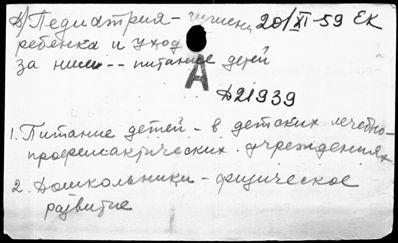 в) Педиатрия - гигиена 20/XI-59 ЕК
ребенка и уход
за ним -- питание детей
А
Д21939
1. Питание детей - в детских лечебно-
профилактических учреждениях
2. Дошкольники - физическое
развитие